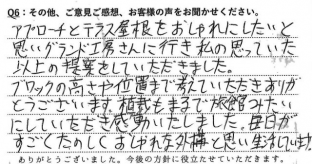 Q6：その他、ご意見ご感想、お客様の声をお聞かせください。
アプローチとテラス屋根をおしゃれにしたいと
思いグランド工房さんに行き私の思っていた
以上の提案をしていただきました。
ブロックの高さや位置まで考えていただきあり
がとうございます。植栽もまるで旅館みたい
にしていただき感動いたしました。毎日が
すごくたのしくおしゃれな外構と思い生きています!
ありがとうございました。今後の方針に役立たせていただきます。